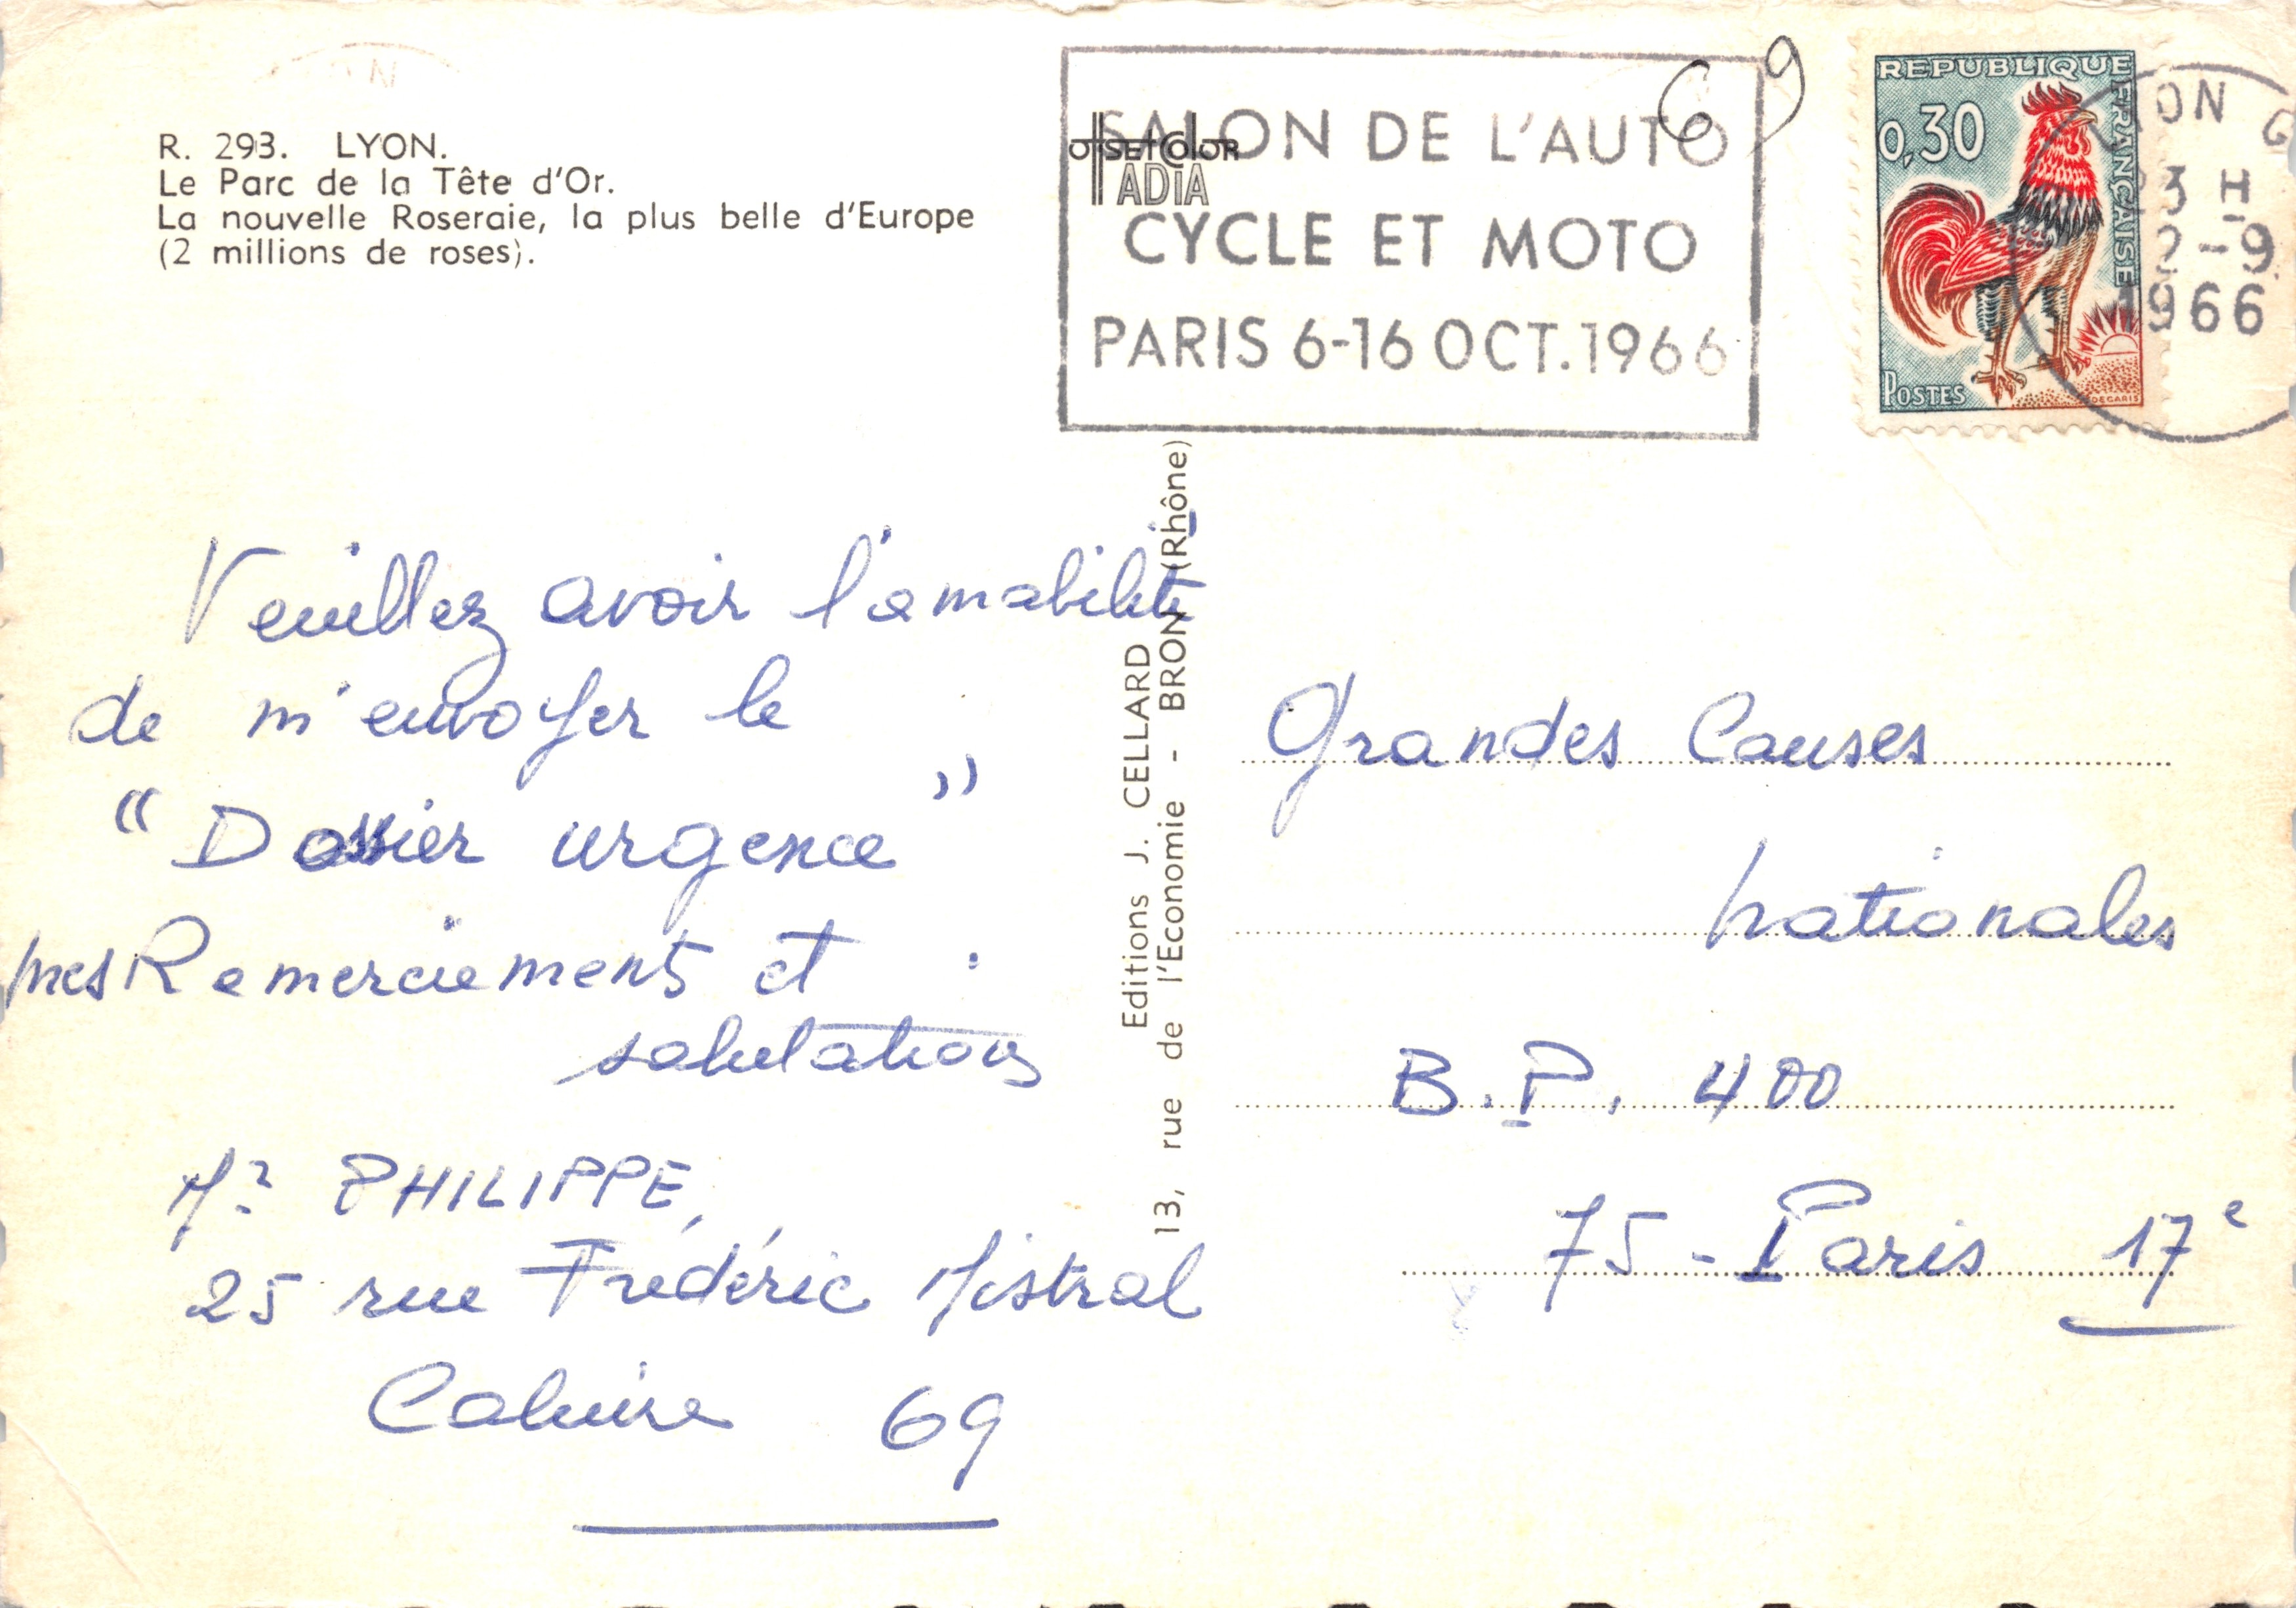 R. 293. LYON.
Le Parc de la Tête d'Or.
La nouvelle Roseraie, la plus belle d'Europe
(2 millions de roses).
OFFSETCOLOR
ADIA
SALON DE L'AUTO
CYCLE ET MOTO
PARIS 6-16 OCT. 1966
69
REPUBLIQUE FRANÇAISE
0,30
POSTES
DECARIS
ON G
3 H
2-9
1966
Veuillez avoir l'amabilité
de m'envoyer le
"Dossier urgence"
mes Remerciements et
salutations
Mr PHILIPPE,
25 rue Frédéric Mistral
Caluire 69
Editions J. CELLARD
13, rue de l'Economie - BRON (Rhône)
Grandes Causes
Nationales
B.P. 400
75 - Paris 17e